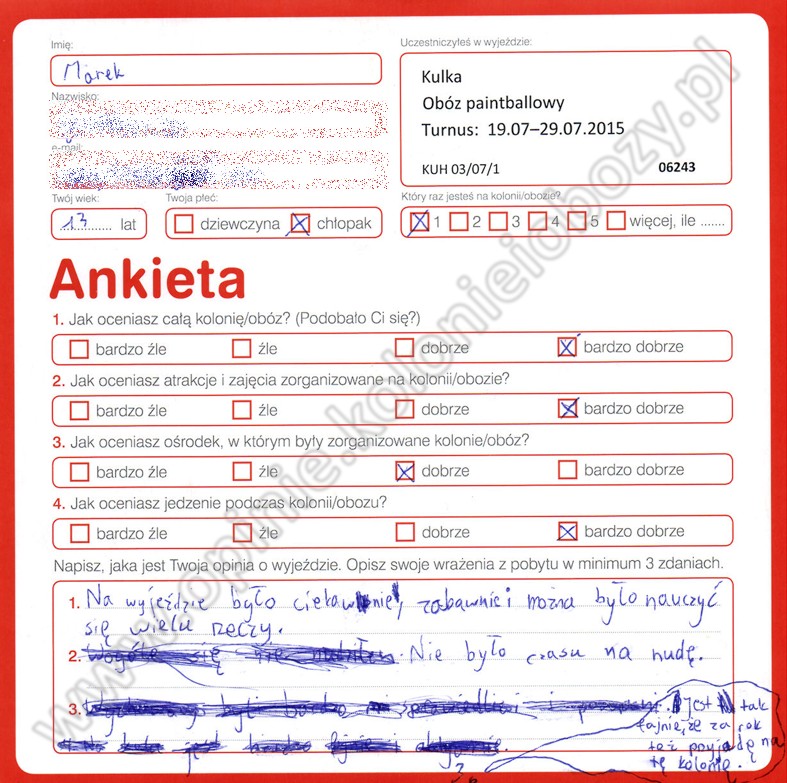 Imię:
Marek
Uczestniczyłeś w wyjeździe:
Kulka
Obóz paintballowy
Turnus: 19.07–29.07.2015
KUH 03/07/1 06243
Nazwisko:
e-mail:
Twój wiek:
13 lat
Twoja płeć:
dziewczyna chłopak
Który raz jesteś na kolonii/obozie?
1 2 3 4 5 więcej, ile .......
Ankieta
1. Jak oceniasz całą kolonię/obóz? (Podobało Ci się?)
bardzo źle źle dobrze bardzo dobrze
2. Jak oceniasz atrakcje i zajęcia zorganizowane na kolonii/obozie?
bardzo źle źle dobrze bardzo dobrze
3. Jak oceniasz ośrodek, w którym były zorganizowane kolonie/obóz?
bardzo źle źle dobrze bardzo dobrze
4. Jak oceniasz jedzenie podczas kolonii/obozu?
bardzo źle źle dobrze bardzo dobrze
Napisz, jaka jest Twoja opinia o wyjeździe. Opisz swoje wrażenia z pobytu w minimum 3 zdaniach.
1. Na wyjeździe było ciekawie, zabawnie i można było nauczyć
się wielu rzeczy.
2. Nie było czasu na nudę.
3. Jest tak
fajnie, że za rok
też przyjadę na
tę kolonię.
www.opinie.kolonieiobozy.pl